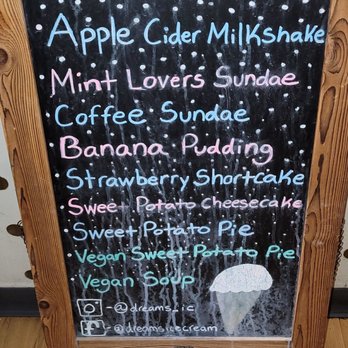 Apple Cider Milkshake
Mint Lovers Sundae
Coffee Sundae
Banana Pudding
Strawberry Shortcake
Sweet Potato Cheesecake
Sweet Potato Pie
Vegan Sweet Potato Pie
Vegan Soup
- @dreams_ic
- @dreamsicecream